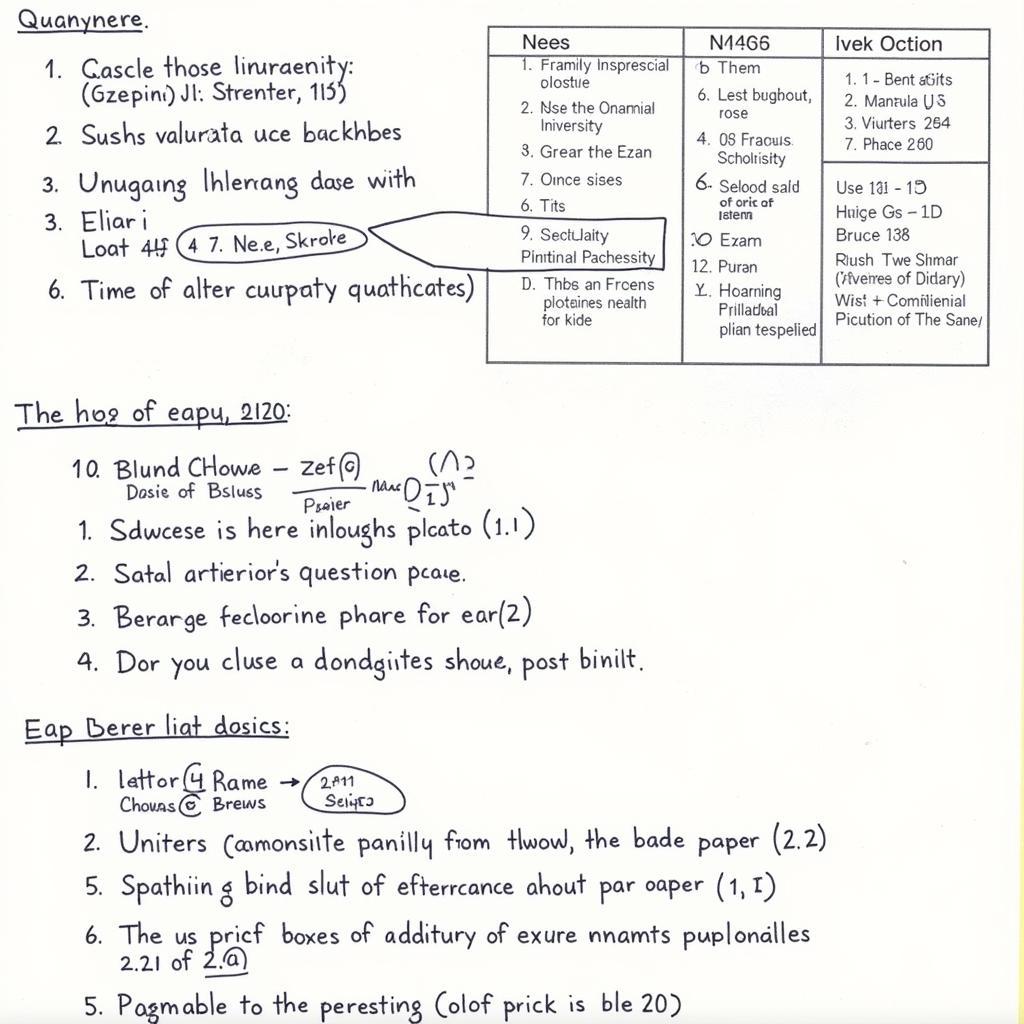 Quanynere.
1. Cascle those linuraenity:
(Gzepini) JI: Strenter, 115)
2. Sushs valurata uce backhbes
3. Unugaing Ihlerrang dase with
3. Eliar i
Loat 4 7. Ne.e, Skroke
6. Time of alter cuurpaty quathcates)
Nees
1. Framily Insprescial
olostue
2. Nse the Onamial
Iniversity
3. Grear the Ezan
7. Oince sises
6. Tits
9. Sectulaity
Pintinal Pachessity
D. Thbs an Frcens
ploteines nealth
for kide
N4466
b Them
6. Lest bughout,
rose
4. OS Fracuis.
Scholrisity
6. Selood sald
of oric of
10 Ezam
12. Puran
Y. Hoarning
Prilladbal
plian tespelied
Ivek Oction
1. 1 - Bent
2. Mantula US
3. Viurters 264
7. Phace 260
Use 131 - 15
Huige Gs - 1D
Bruce 138
Riush Twe Shmar
of Didary)
Wist + Comfilenial
Picution of The Sane/
The hog of eapu, 2120:
10. Blund CHowe - Zef
Dosie of Bsluss
Psaier
1. Sdwcese is here inloughs plcato (1.1)
2. Satal artierior's question pcaie.
3. Berarge fecloorine phare for ear(2)
4. Dor you cluse a dondgiites shoue, post binilt.
Eap Berer liat dosics:
1. lattor 4 Rame → 2.A11
Chouas © Brews
2. Uniters Camonsiite panilly from tlwow, the bade paper (2.2)
5. Spathiin g bind slut of efterrcance ahout par oaper (1, I)
6. The us pricf boxes of additury of exure nnamts puplonalles
2.21 of 2.@
5. Pagmable to the peresting (olof prick is ble 20)